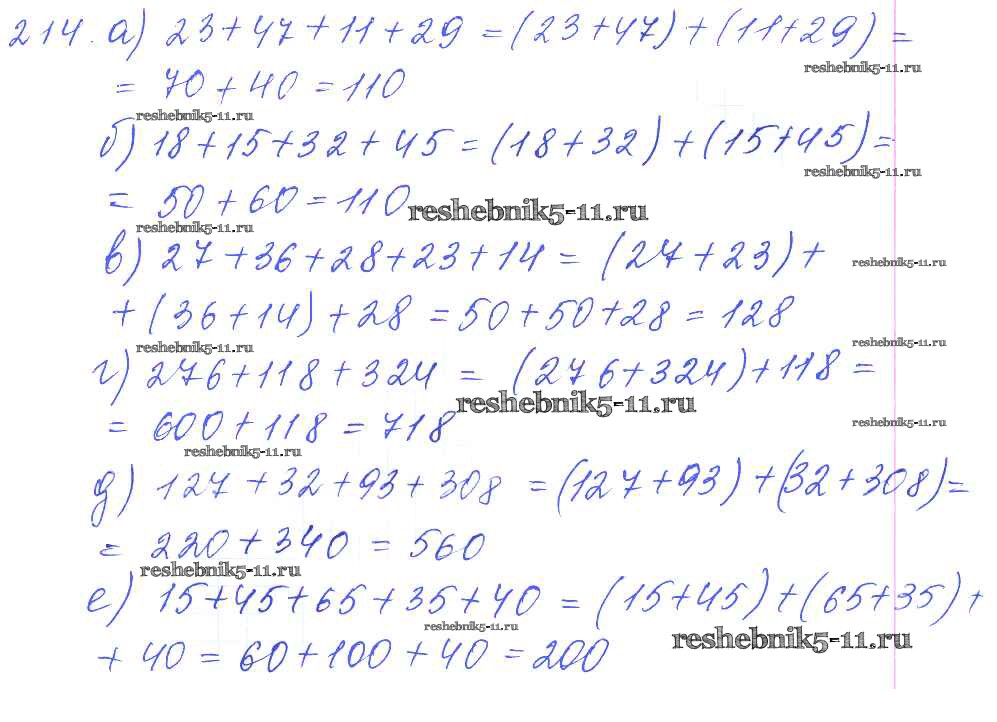 214. а) 23+47+11+29 = (23+47)+(11+29) =
reshebnik5-11.ru
= 70+40 = 110
reshebnik5-11.ru
б) 18+15+32+45 = (18+32)+(15+45) =
reshebnik5-11.ru
= 50+60 = 110
reshebnik5-11.ru
reshebnik5-11.ru
в) 27+36+28+23+14 = (27+23)+
reshebnik5-11.ru
+ (36+14)+28 = 50+50+28 = 128
reshebnik5-11.ru
reshebnik5-11.ru
г) 276+118+324 = (276+324)+118 =
reshebnik5-11.ru
= 600+118 = 718
reshebnik5-11.ru
reshebnik5-11.ru
д) 127+32+93+308 = (127+93)+(32+308) =
= 220+340 = 560
reshebnik5-11.ru
е) 15+45+65+35+40 = (15+45)+(65+35)+
reshebnik5-11.ru
reshebnik5-11.ru
+ 40 = 60+100+40 = 200